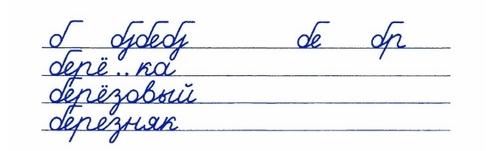 б бjбебj бе бр
берё..ка
берёзовый
березняк